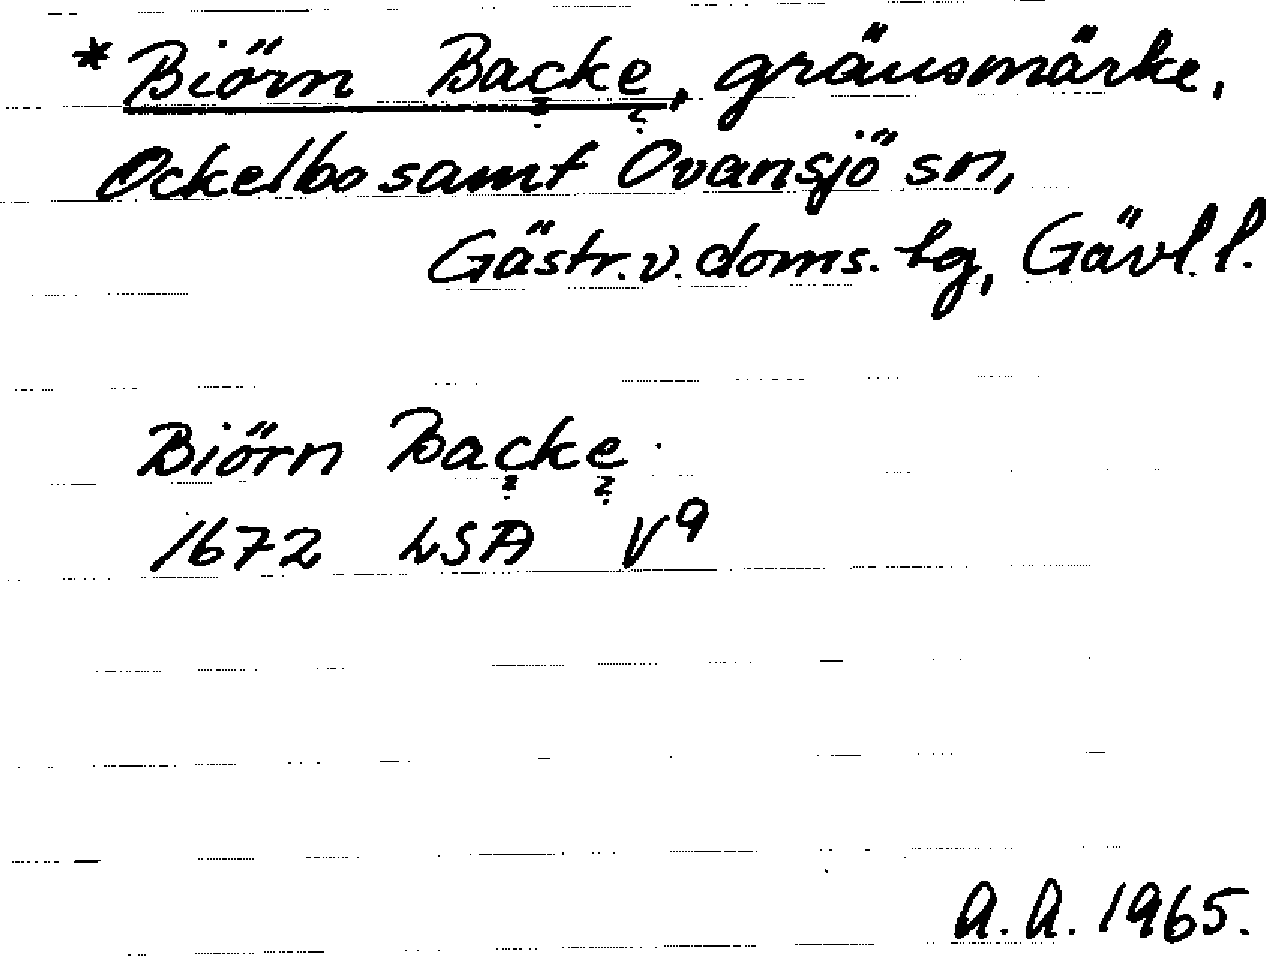 *Biörn Backe, gränsmärke,
Ockelbo samt Ovansjö sn,
Gästr. v. doms. tg, Gävl. l.
Biörn Backe
? ?
1672 LSA V9
A. A. 1965.